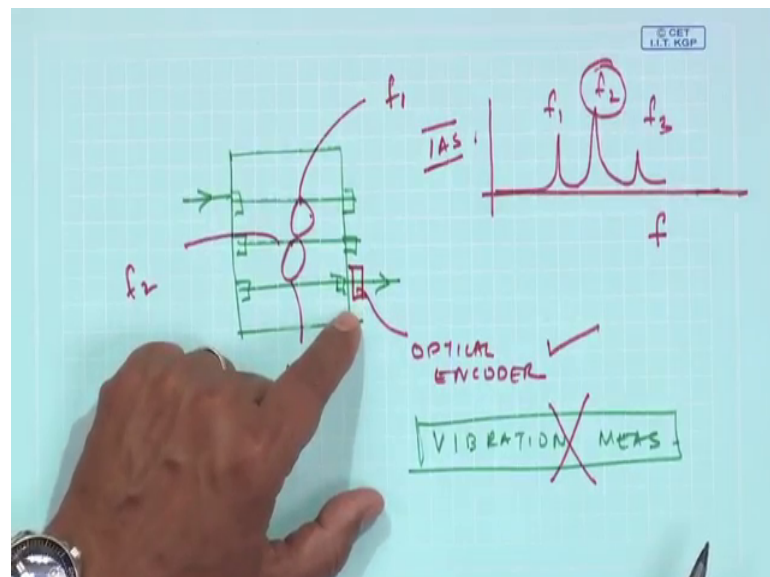 © CET
I.I.T. KGP
f1
IAS :
f1
f2
f3
f
f2
OPTICAL
ENCODER
VIBRATION MEAS.